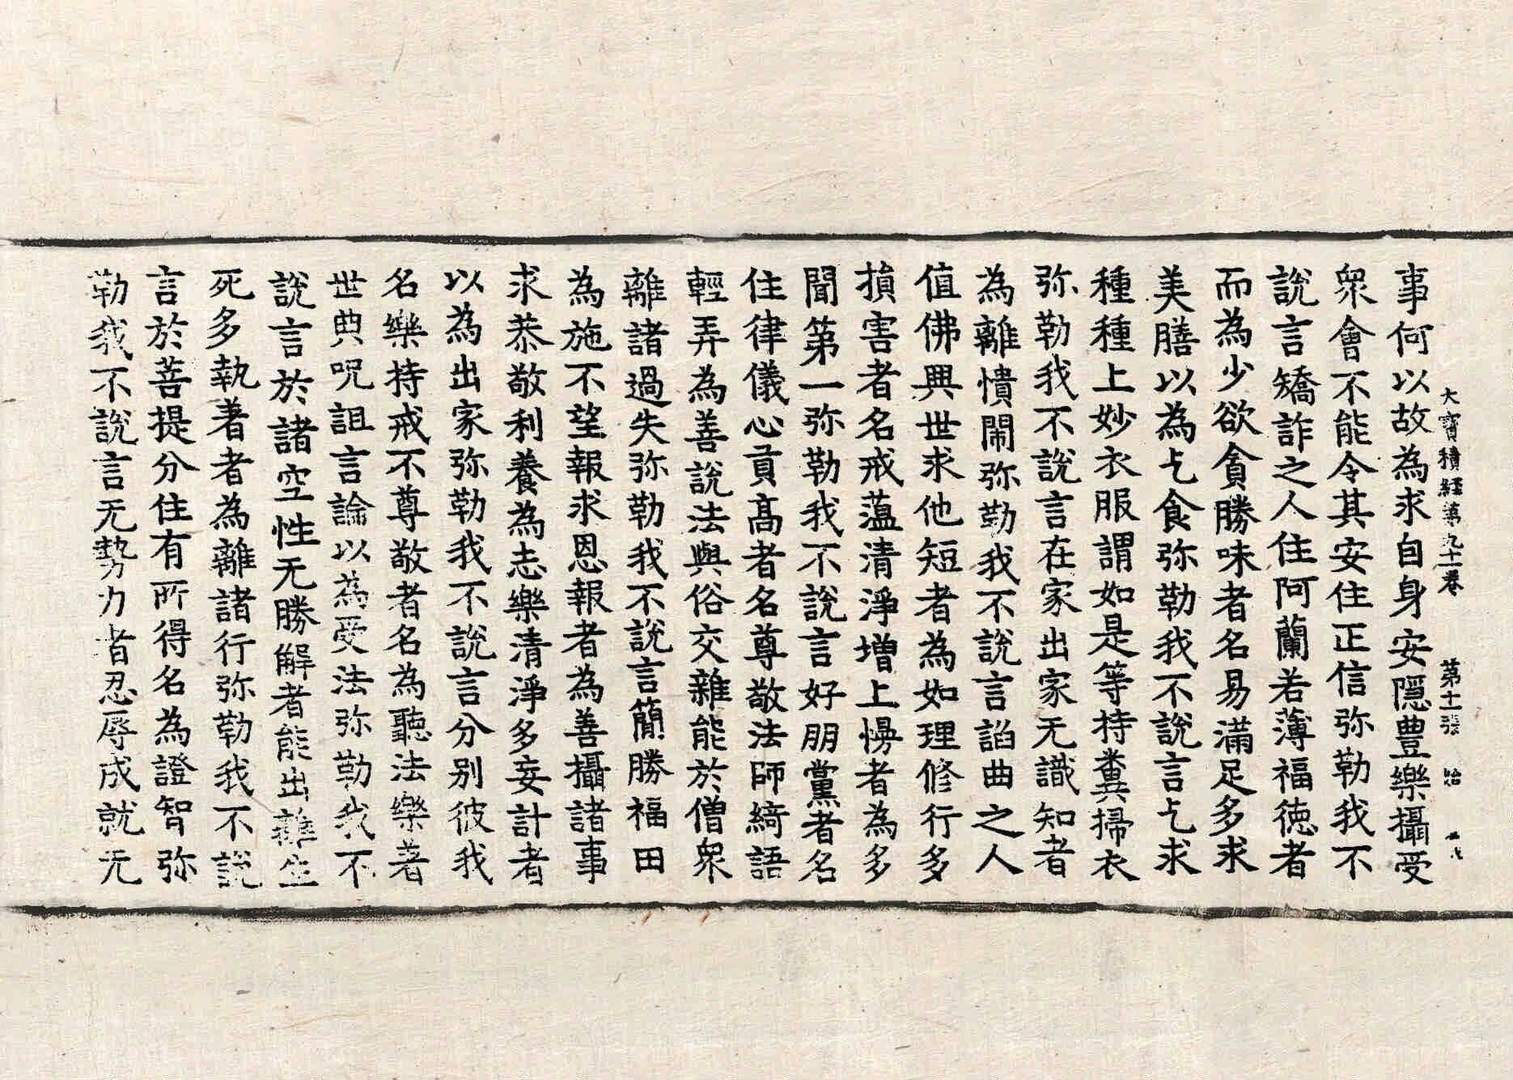 大寶積經第九十一卷 第十一張
事何以故為求自身安隱豊樂攝受
衆會不能令其安住正信弥勒我不
說言矯詐之人住阿蘭若薄福徳者
而為少欲貪勝味者名易滿足多求
美膳以為乞食弥勒我不說言乞求
種種上妙衣服謂如是等持糞掃衣
弥勒我不說言在家出家无識知者
為離憒閙弥勒我不說言諂曲之人
值佛興世求他短者為如理修行多
損害者名戒薀清淨增上慢者為多
聞第一弥勒我不說言好朋黨者名
住律儀心貢髙者名尊敬法師綺語
輕弄為善說法與俗交雜能於僧衆
離諸過失弥勒我不說言簡勝福田
為施不望報求恩報者為善攝諸事
求恭敬利養為志樂清淨多妄計者
以為出家弥勒我不說言分别彼我
名樂持戒不尊敬者名為聽法樂著
世典呪詛言論以為愛法弥勒我不
說言於諸空性无勝解者能出離生
死多執著者為離諸行弥勒我不說
言於菩提分住有所得名為證智弥
勒我不說言无勢力者忍辱成就无